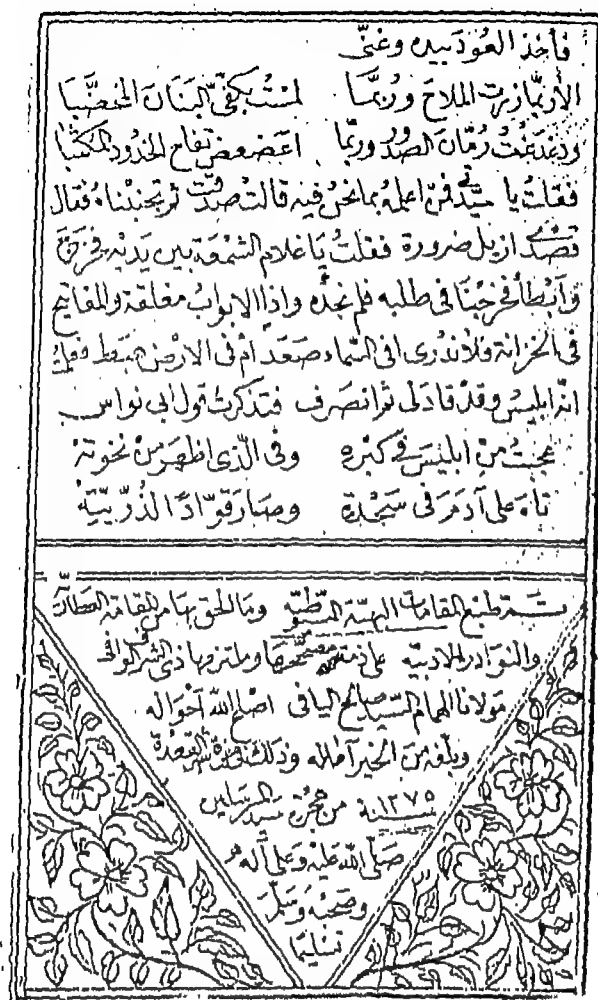 فأخذ العود بيده وغنى
الا ربما زرت الملاح وربما لمست بكفي البنان المخضبا
ودغدغت رمان الصدور وربما اعضعض تفاح الخدود المكتبا
فقلت يا سيدتي فمن اعلمه بما نحن فيه قالت صدقت ثم تجنبناه فقال
قصدي ازيل ضرورة فقلت يا غلام الشمعة بين يديه فخرج
وابطأ فخرجنا في طلبه فلم نجده واذا الابواب مغلقة والمفاتيح
في الخزانة فلا ندري افي السماء صعد ام في الارض هبط فعلمت
انه ابليس وقد قاد لي ثم انصرف فتذكرت قول ابي نواس
عجبت من ابليس في كبره وفي الذي اظهر من نخوته
تاه على آدم في سجدة وصار قوادا لذريته
تمت طبع المقامات البهية السيوطية وما الحق بها من المقامة
والنوادر الادبية على ذمة مصححها وملتزمها ذي الشرف
مولانا الهمام السيد صالح اليافي اصلح الله احواله
وبلغه من الخير آماله وذلك في غرة شهر القعدة
سنة ١٢٧٥ من هجرة سيد المرسلين
صلى الله عليه وعلى آله
وصحبه وسلم
تسليما